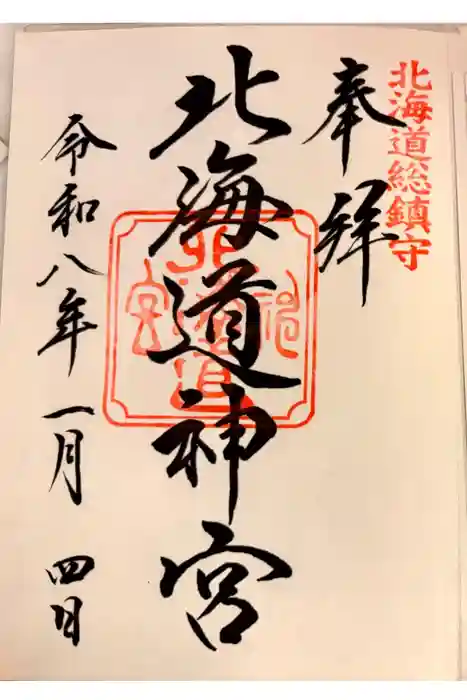 北海道総鎮守
奉拝
北海道神宮
北海道神宮
令和八年一月四日